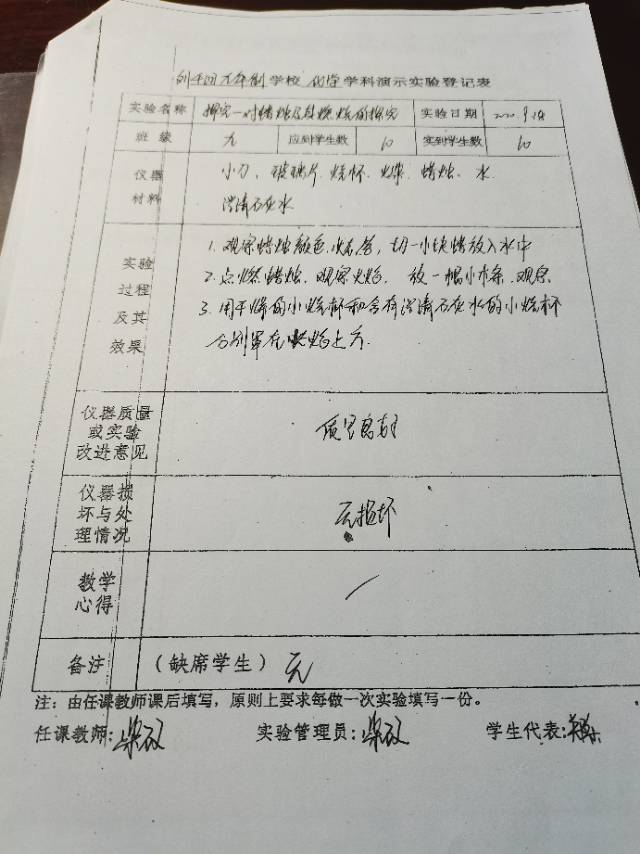 九年制学校 化学学科演示实验登记表
实验名称 探究一对蜡烛及其燃烧的探究 实验日期 2020.9
班级 九 应到学生数 10 实到学生数 10
仪器材料 小刀、玻璃片、烧杯、火柴、蜡烛、水
澄清石灰水
实验过程及其效果
1. 观察蜡烛颜色、状态,切一小块蜡放入水中
2. 点燃蜡烛,观察火焰,放一小木条,观察
3. 用干燥的小烧杯和含有澄清石灰水的小烧杯
分别罩在火焰上方.
仪器质量或实验改进意见 质量良好
仪器损坏与处理情况 无损坏
教学心得
备注 (缺席学生) 无
注:由任课教师课后填写,原则上要求每做一次实验填写一份。
任课教师: 实验管理员: 学生代表: